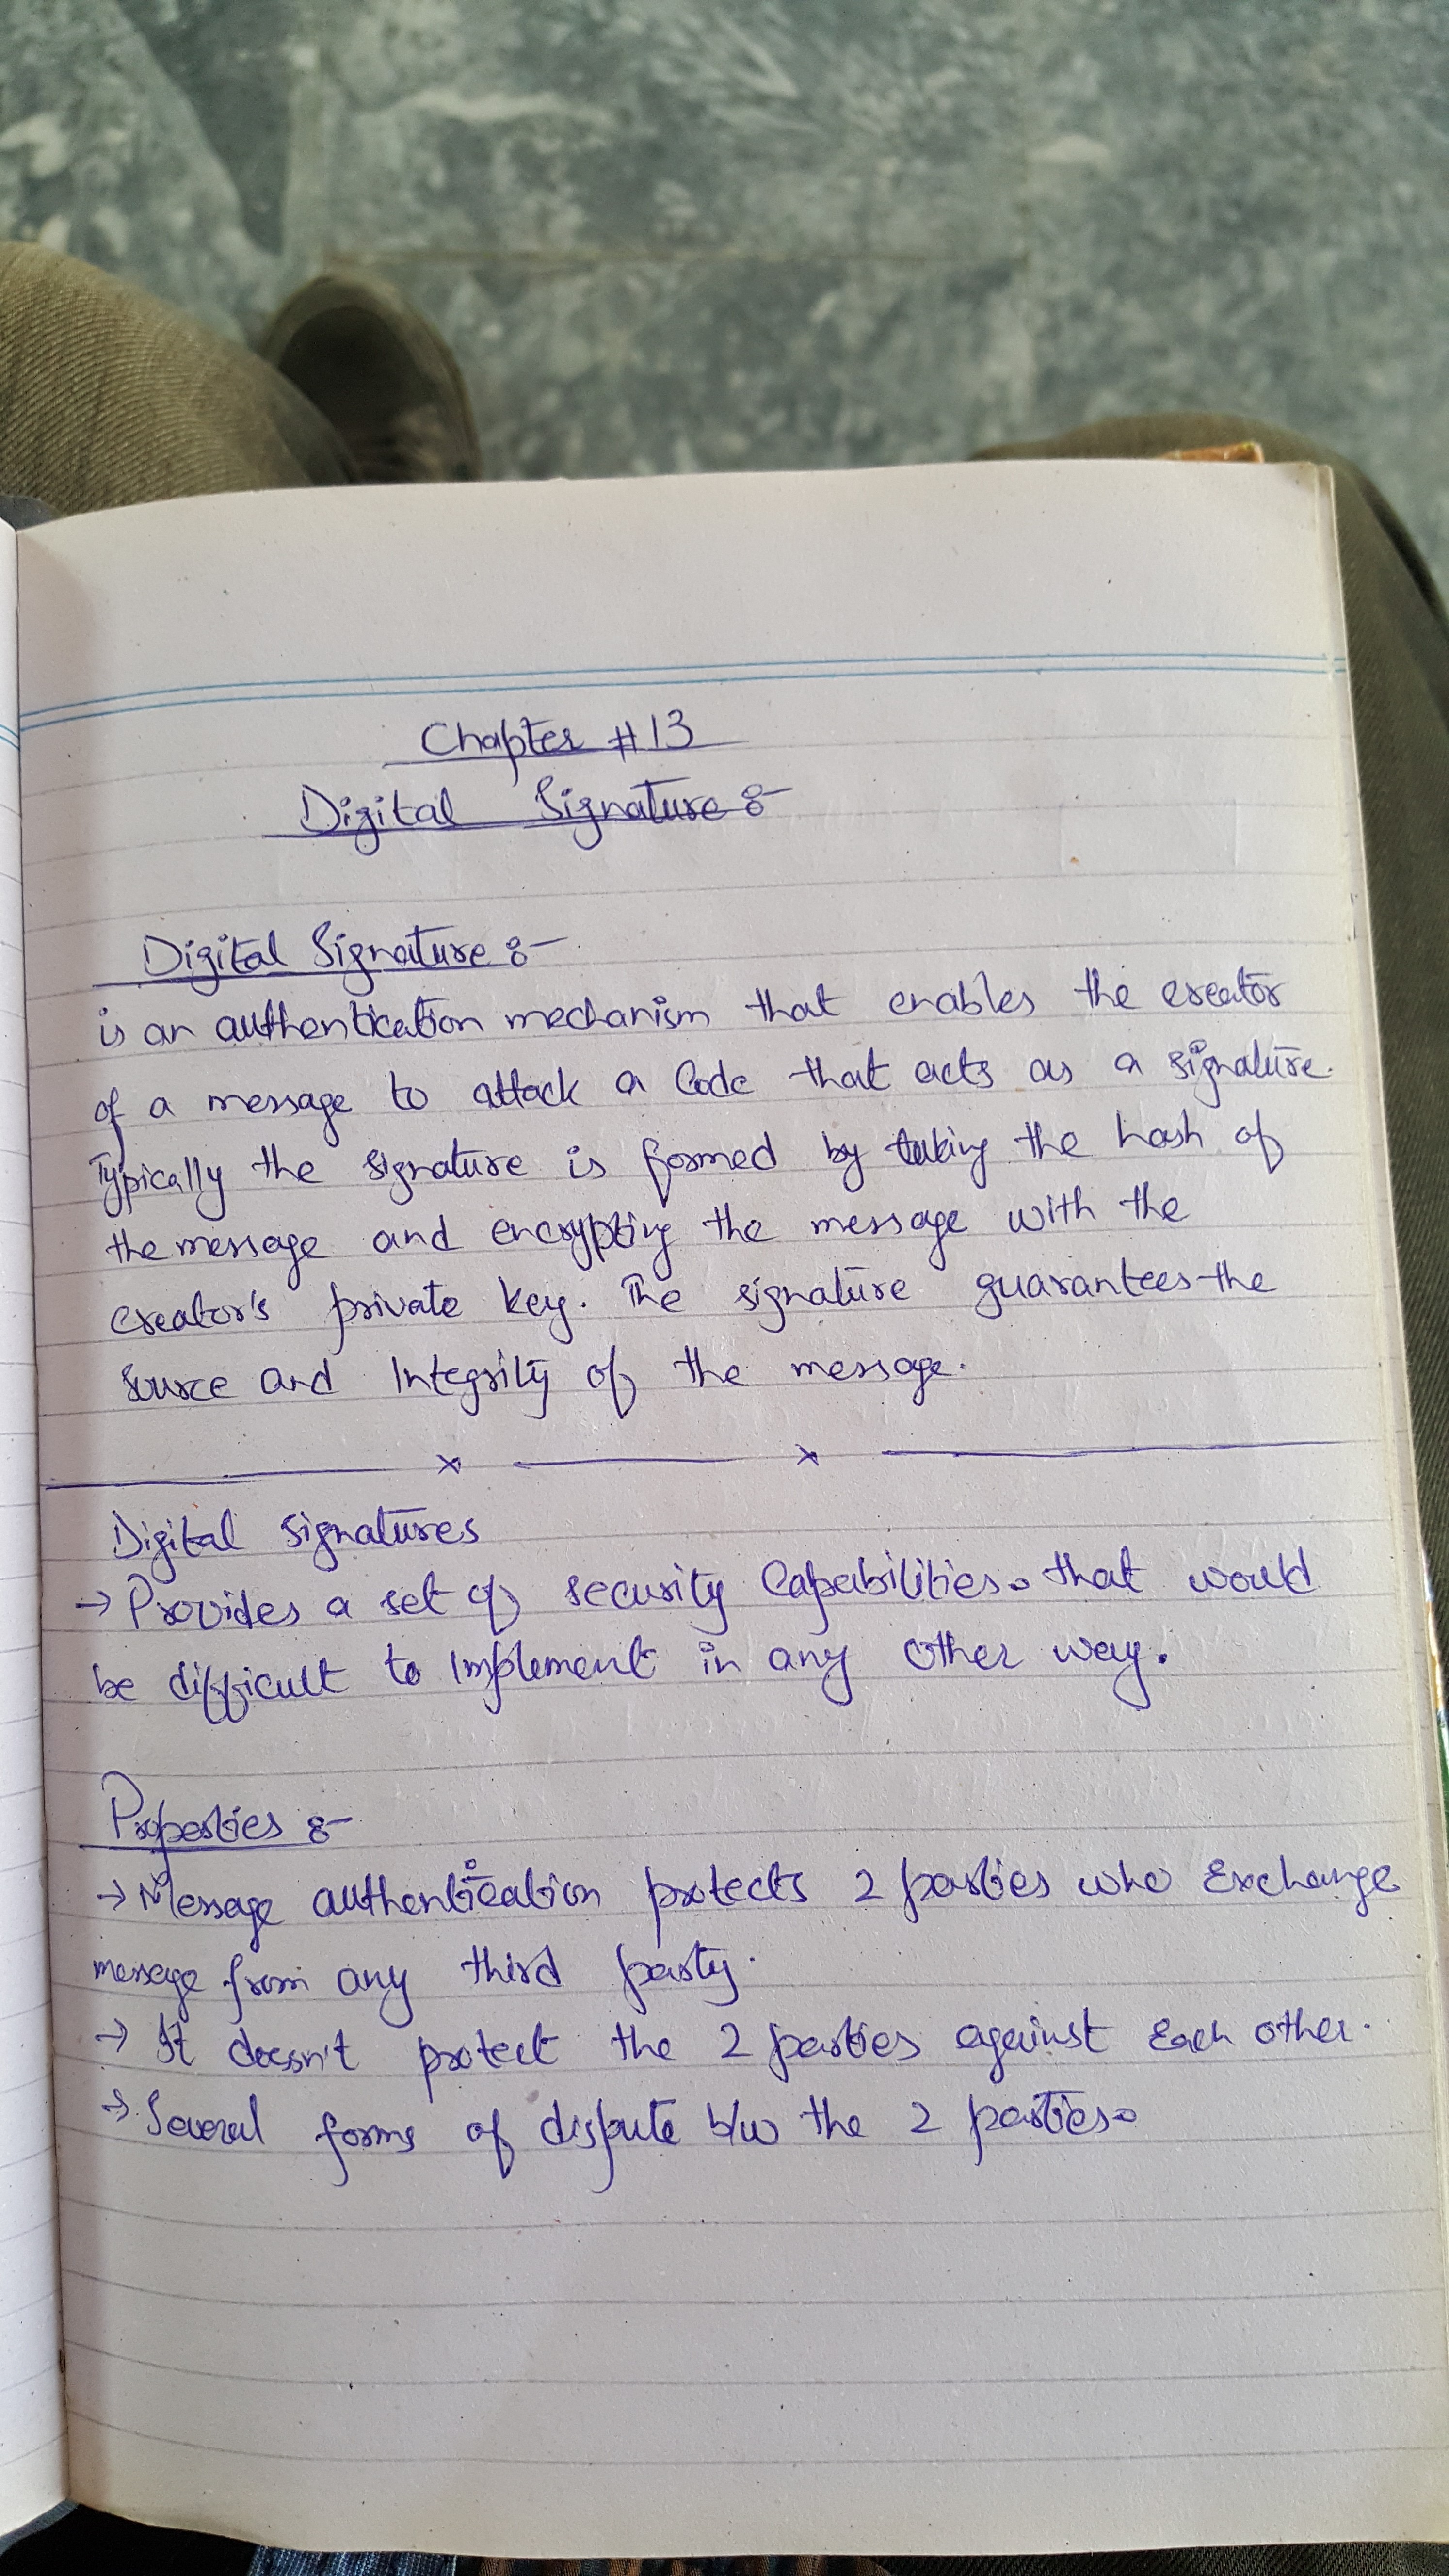 Chapter #13
Digital Signature :-
Digital Signature :-
is an authentication mechanism that enables the creator
of a message to attack a Code that acts as a signature.
Typically the signature is formed by taking the hash of
the message and encrypting the message with the
creator's private key. The signature guarantees the
source and Integrity of the message.
Digital signatures
→ Provides a set of security Capabilities. that would
be difficult to Implement in any other way.
Properties :-
→ Message authentication protects 2 parties who Exchange
message from any third party.
→ It doesn't protect the 2 parties against Each other.
→ Several forms of dispute b/w the 2 parties.